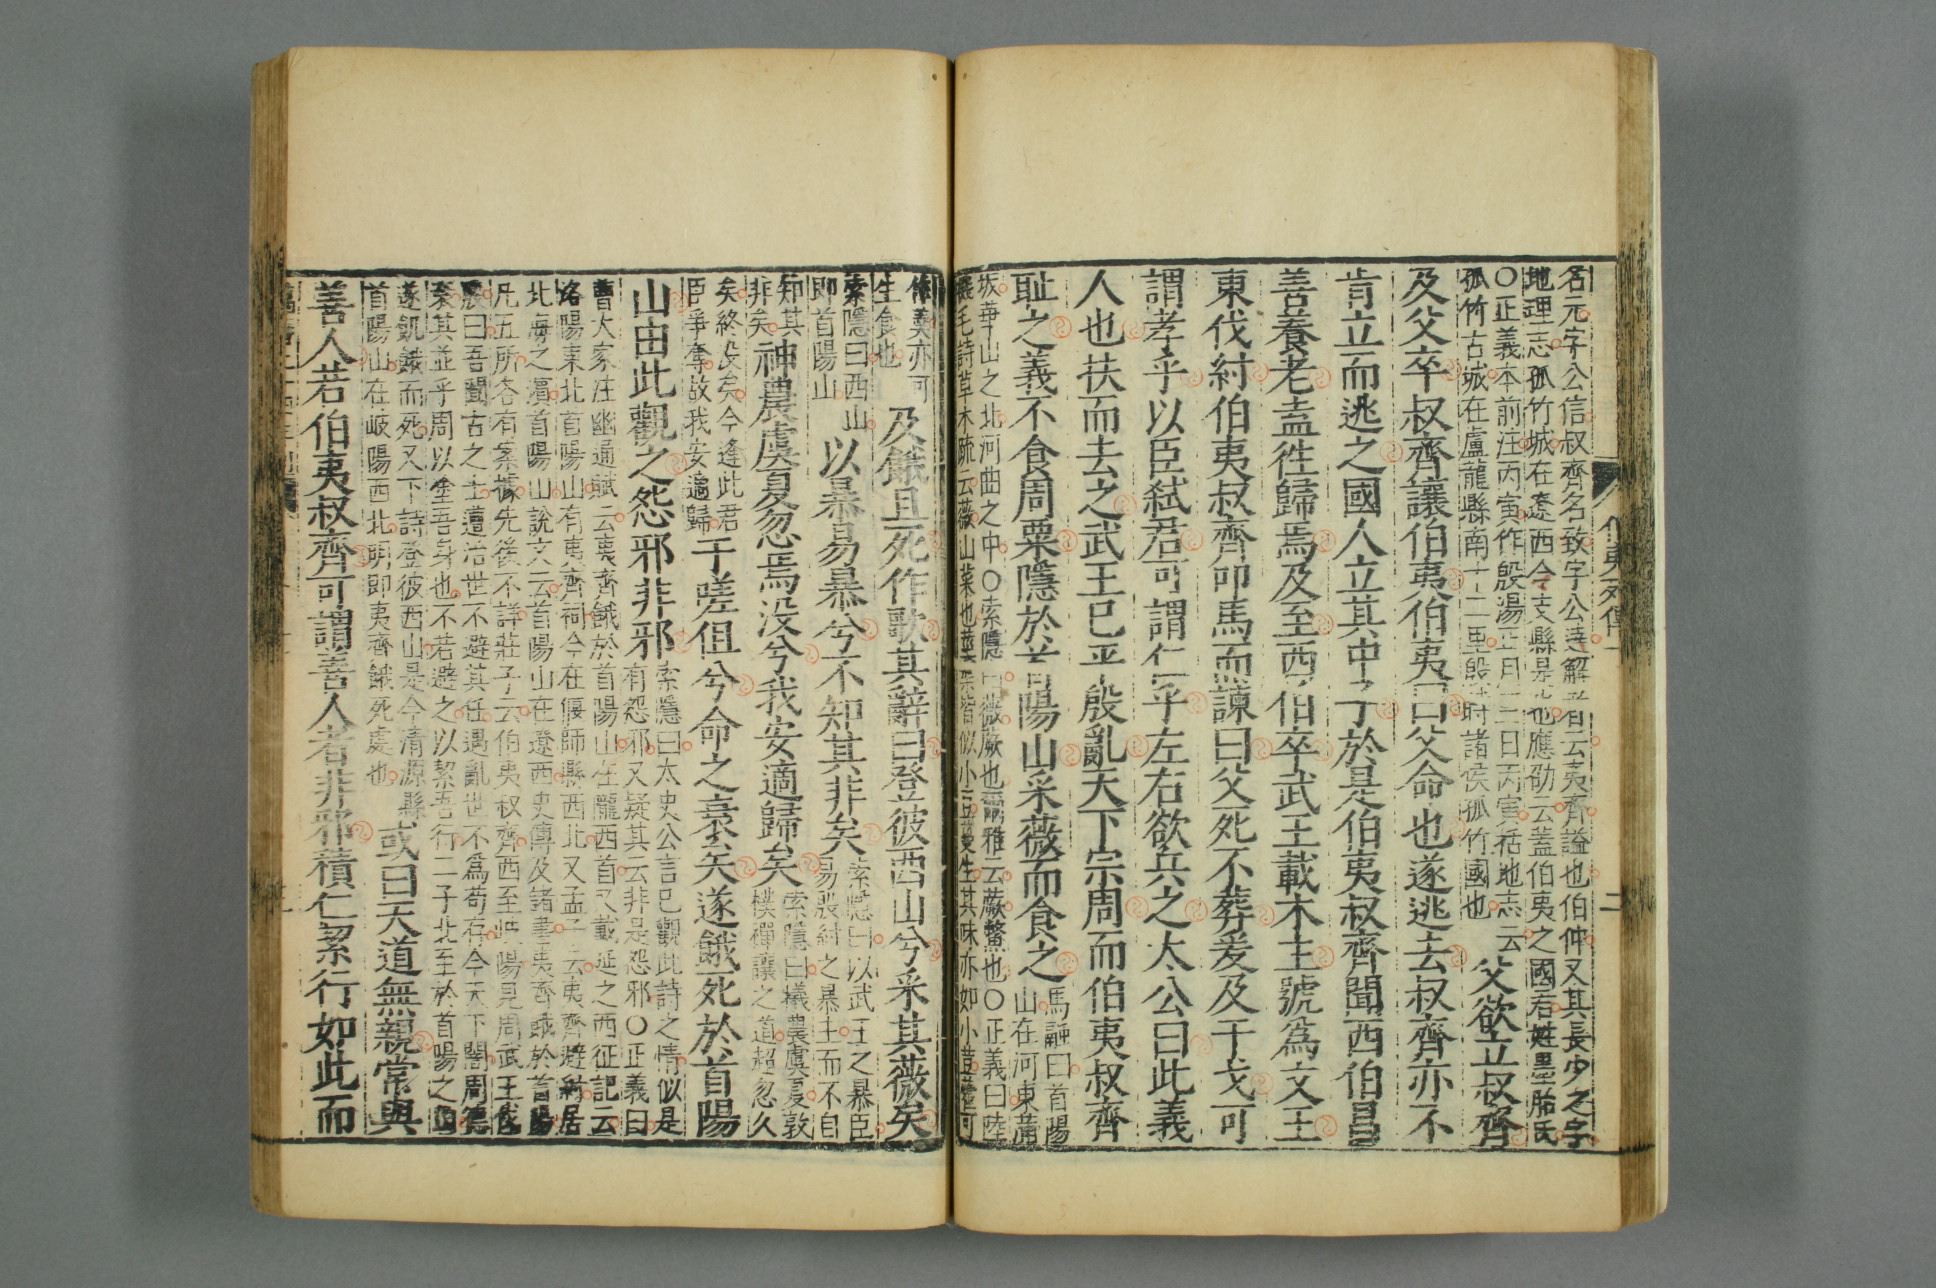 名元字公信叔齊名致字公達解者云夷齊謚也伯仲又其長少之字
地理志孤竹城在遼西令支縣是也應劭云蓋伯夷之國君姓墨胎氏
○正義本前注丙寅作殷湯正月三日丙寅括地志云
孤竹古城在盧龍縣南十二里殷時諸侯孤竹國也
父欲立叔齊
及父卒叔齊讓伯夷伯夷曰父命也遂逃去叔齊亦不
肯立而逃之國人立其中子於是伯夷叔齊聞西伯昌
善養老盍徃歸焉及至西伯卒武王載木主號為文王
東伐紂伯夷叔齊叩馬而諫曰父死不葬爰及干戈可
謂孝乎以臣弒君可謂仁乎左右欲兵之太公曰此義
人也扶而去之武王已平殷亂天下宗周而伯夷叔齊
耻之義不食周粟隱於首陽山采薇而食之
馬融曰首陽
山在河東蒲
坂華山之北河曲之中○索隱曰薇蕨也爾雅云蕨鱉也○正義曰陸
璣毛詩草木疏云薇山菜也莖葉皆似小豆蔓生其味亦如小豆藿可
作羹亦可
生食也
及餓且死作歌其辭曰登彼西山兮采其薇矣
索隱曰西山
即首陽山
以暴易暴兮不知其非矣
索隱曰以武王之暴臣
易殷紂之暴主而不自
知其
非矣
神農虞夏忽焉没兮我安適歸矣
索隱曰羲農虞夏敦
樸禪讓之道超忽久
矣終没矣今逢此君
臣爭奪故我安適歸
于嗟徂兮命之衰矣遂餓死於首陽
山由此觀之怨邪非邪
索隱曰太史公言已觀此詩之情似是
有怨邪又疑其云非是怨邪○正義曰
曹大家注幽通賦云夷齊餓於首陽山在隴西首又戴延之西征記云
洛陽東北首陽山有夷齊祠今在偃師縣西北又孟子云夷齊避紂居
北海之濱首陽山說文云首陽山在遼西史傳及諸書夷齊餓於首陽
凡五所各有案據先後不詳莊子云伯夷叔齊西至岐陽見周武王伐
殷曰吾聞古之士遭治世不避其任遇亂世不為苟存今天下闇周德
衰其並乎周以塗吾身也不若避之以絜吾行二子北至於首陽之山
遂飢餓而死又下詩登彼西山是今清源縣
首陽山在岐陽西北明即夷齊餓死處也
或曰天道無親常與
善人若伯夷叔齊可謂善人者非邪積仁絜行如此而